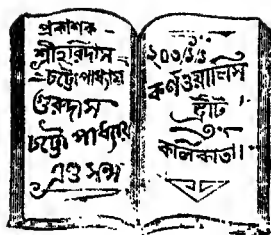 প্রকাশক–
শ্রীহরিদাস
চট্টোপাধ্যায়
গুরুদাস
চট্টোপাধ্যায়
এণ্ড সন্স
২০৩/১/১
কর্ণওয়ালিস
ষ্ট্রীট
কলিকাতা।